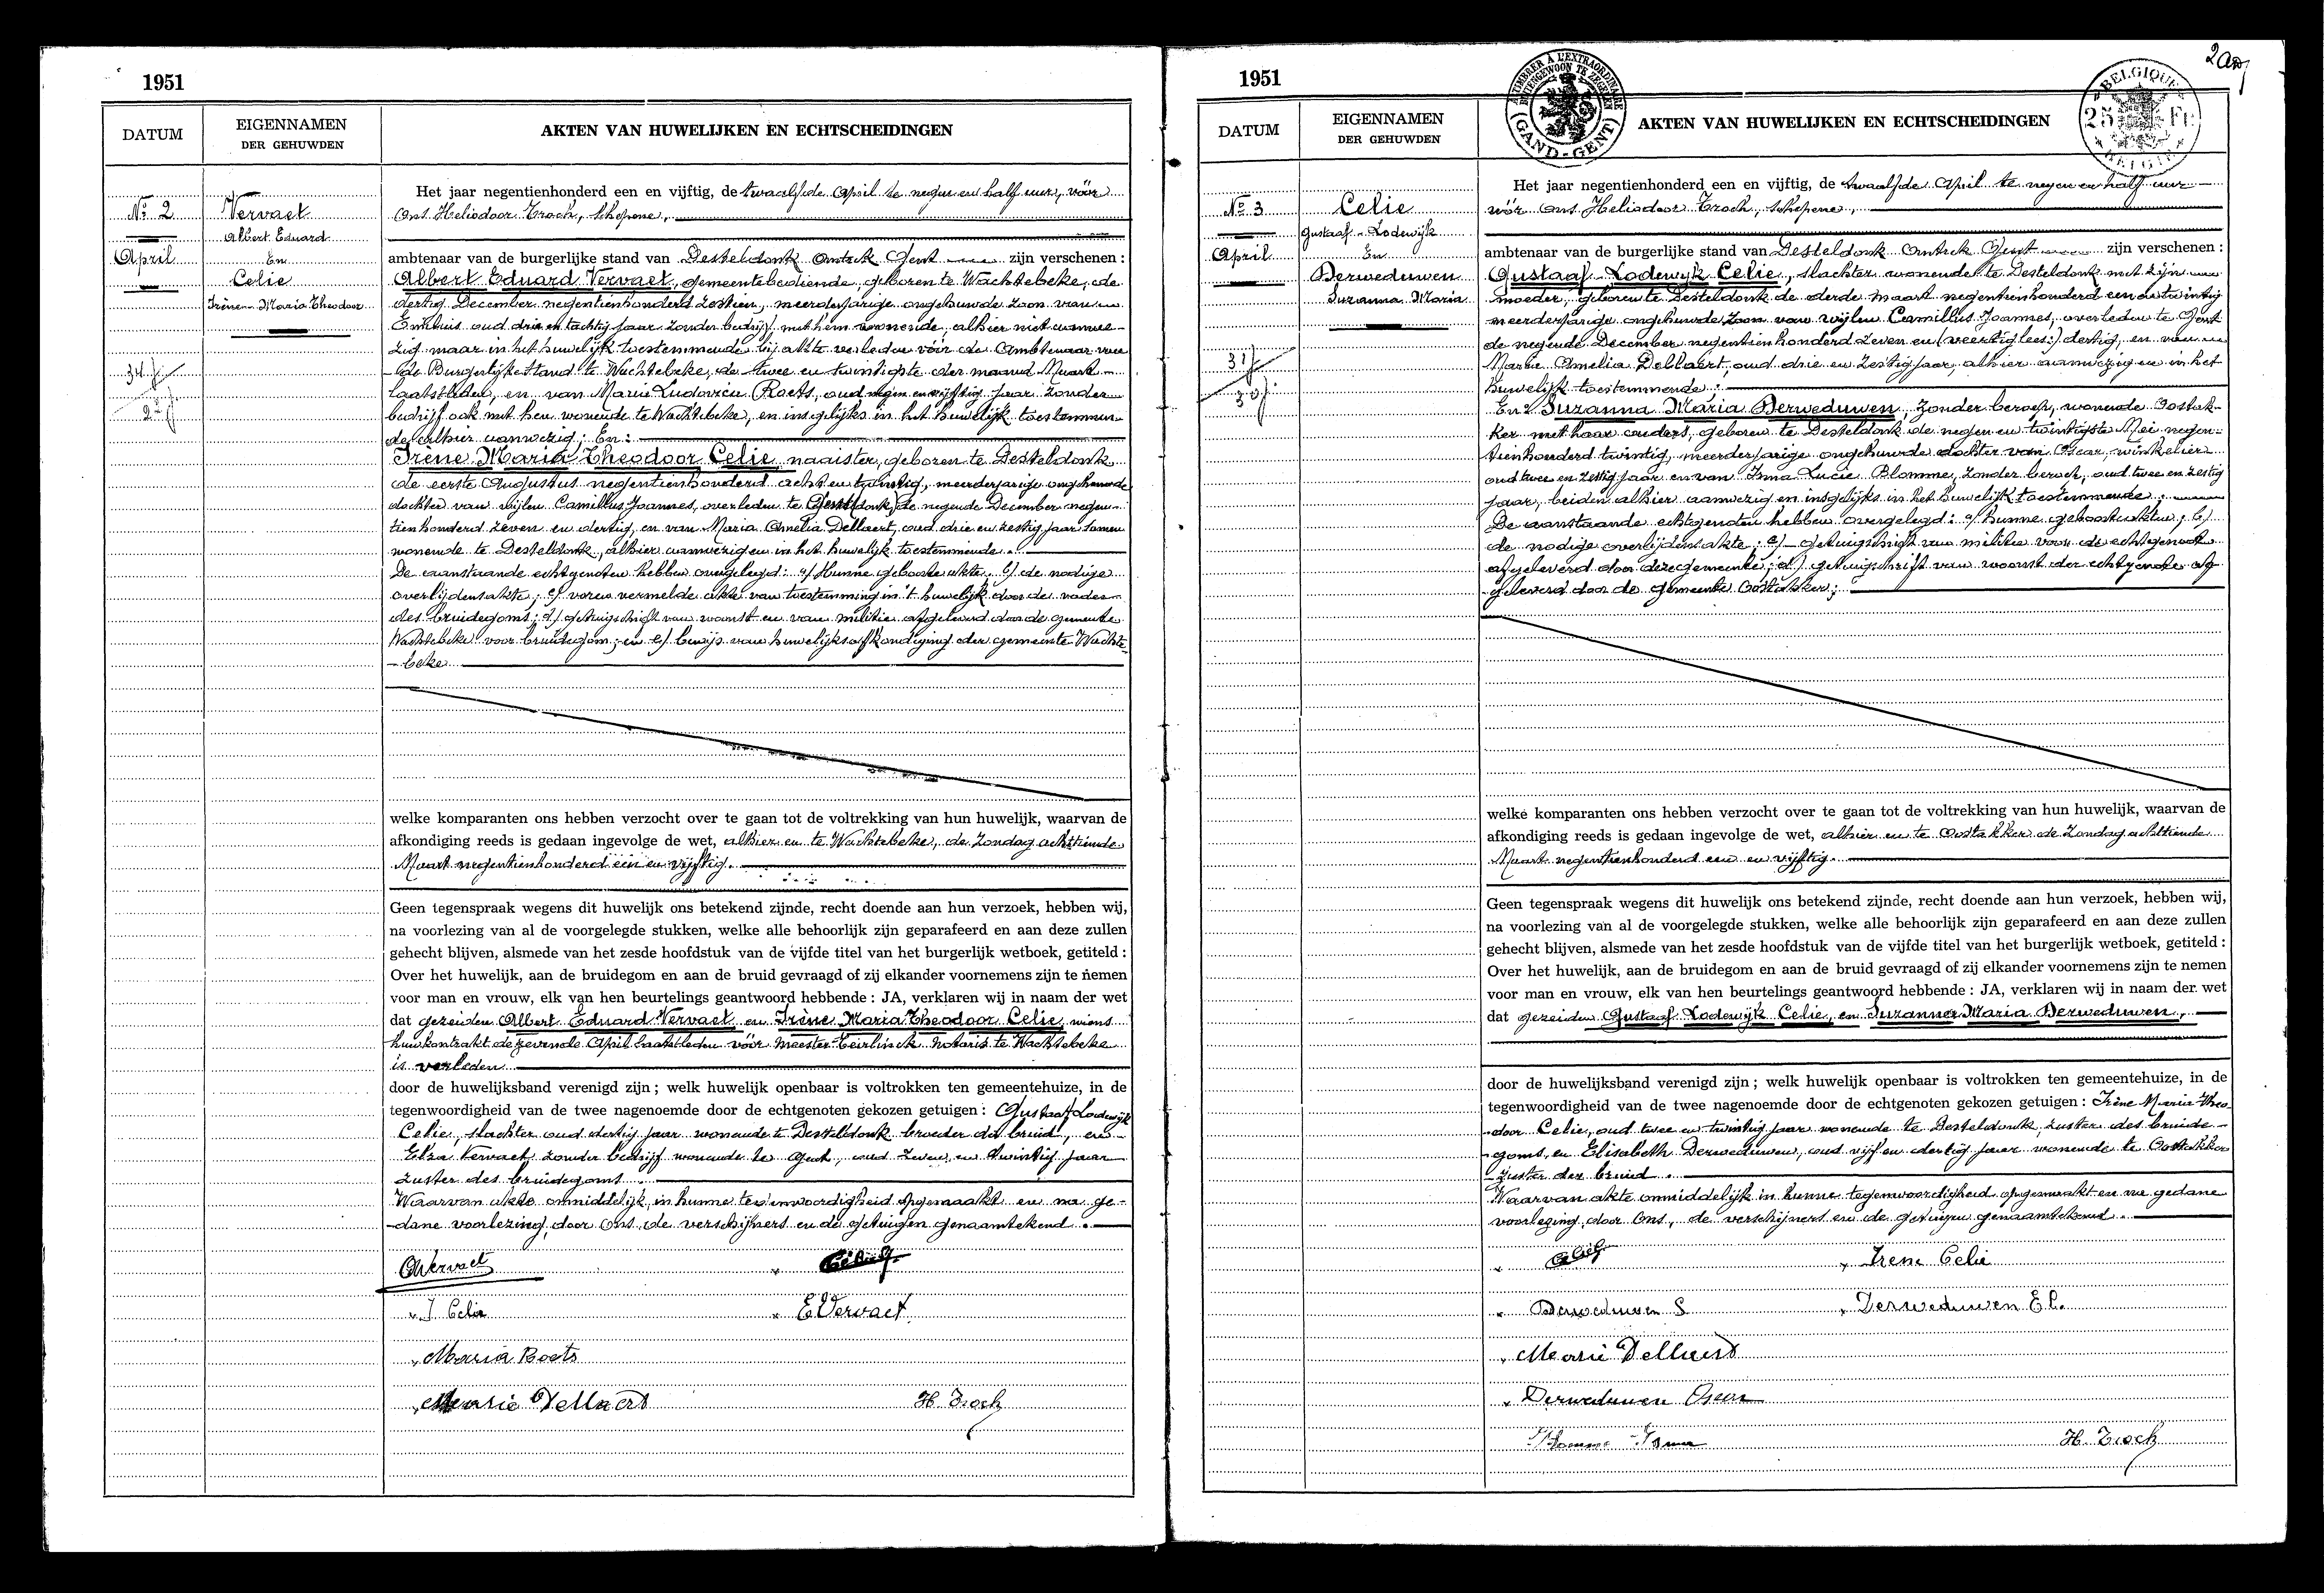 1951
DATUM
EIGENNAMEN
DER GEHUWDEN
AKTEN VAN HUWELIJKEN EN ECHTSCHEIDINGEN
No 2
April
Vervaet
Albert Eduard
En
Celie
Irène-Maria Theodoor
Het jaar negentienhonderd een en vijftig, de twaalfde April te negen en half uur, vóór
Ons Heliodoor Troch, schepene,
ambtenaar van de burgerlijke stand van Desteldonk Omtrek Gent zijn verschenen :
Albert Eduard Vervaet, gemeentebediende, geboren te Wachtebeke, de
dertig December negentienhonderd zestien, meerderjarige ongehuwde zoon van
oud drie en tachtig jaar zonder bedrijf, met hem wonende, alhier niet aanwe-
zig maar in het huwelijk toestemmende bij akte verleden vóór de Ambtenaar van
de Burgerlijke Stand te Wachtebeke, de twee en twintigste der maand Maart
laatstleden, en van Marie Ludovica Roets, oud negen en vijftig jaar zonder
bedrijf ook met hen wonende te Wachtebeke, en insgelijks in het huwelijk toestemmen-
de alhier aanwezig; En:
Irène Maria Theodoor Celie, naaister, geboren te Desteldonk
de eerste Augustus negentienhonderd acht en twintig, meerderjarige ongehuwde
dochter van wijlen Camillus Joannes, overleden te de negende December negen-
tienhonderd zeven en dertig, en van Maria Amelia Dellaert, oud drie en zestig jaar samen
wonende te Desteldonk, alhier aanwezig en in het huwelijk toestemmende.
De aanstaande echtgenoten hebben overgelegd: a/ Hunne geboorte akte, b/ de nodige
overlijdensakte; c/ voren vermelde akte van toestemming in 't huwelijk door de vader
des bruidegoms; d/ getuigschrift van woonst en van militie afgeleverd door de gemeente
Wachtebeke voor bruidegom; en e/ bewijs van huwelijksafkondiging der gemeente Wachte-
beke
welke komparanten ons hebben verzocht over te gaan tot de voltrekking van hun huwelijk, waarvan de
afkondiging reeds is gedaan ingevolge de wet, alhier en te Wachtebeke, de Zondag achttiende
Maart negentienhonderd één en vijftig.
Geen tegenspraak wegens dit huwelijk ons betekend zijnde, recht doende aan hun verzoek, hebben wij,
na voorlezing van al de voorgelegde stukken, welke alle behoorlijk zijn geparafeerd en aan deze zullen
gehecht blijven, alsmede van het zesde hoofdstuk van de vijfde titel van het burgerlijk wetboek, getiteld :
Over het huwelijk, aan de bruidegom en aan de bruid gevraagd of zij elkander voornemens zijn te nemen
voor man en vrouw, elk van hen beurtelings geantwoord hebbende : JA, verklaren wij in naam der wet
dat gezeiden Albert Eduard Vervaet en Irène Maria Theodoor Celie, wiens
huwkontrakt de zevende April laatstleden vóór Meester Teirlinck Notaris te Wachtebeke
is verleden
door de huwelijksband verenigd zijn ; welk huwelijk openbaar is voltrokken ten gemeentehuize, in de
tegenwoordigheid van de twee nagenoemde door de echtgenoten gekozen getuigen : Gustaaf Lodewijk
Celie, slachter oud dertig jaar wonende te Desteldonk broeder der bruid, en
Elza Vervaet zonder bedrijf wonende te Gent, oud zeven en twintig jaar
zuster des bruidegoms.
Waarvan akte onmiddelijk, in hunne tegenwoordigheid opgemaakt en na ge-
dane voorlezing, door Ons, de verschijners en de getuigen genaamtekend.
AVervaet
I Celie
E Vervaet
Maria Roets
Marie Dellaert
H. Troch
1951
ATIMBRER A L'EXTRAORDINAIRE
BUITENGEWOON TE ZEGELEN
(GAND-GENT)
BELGIQUE
25 Fr
BELGIË
DATUM
EIGENNAMEN
DER GEHUWDEN
AKTEN VAN HUWELIJKEN EN ECHTSCHEIDINGEN
No 3
April
Celie
Gustaaf-Lodewijk
En
Derweduwen
Suzanna Maria
Het jaar negentienhonderd een en vijftig, de twaalfde April te negen en half uur
vóór Ons Heliodoor Troch, schepene,
ambtenaar van de burgerlijke stand van Desteldonk Omtrek Gent zijn verschenen :
Gustaaf-Lodewyk Celie, slachter wonende te Desteldonk met zijn
moeder, geboren te Desteldonk de derde Maart negentienhonderd een en twintig
meerderjarige ongehuwde zoon van wijlen Camillus Joannes, overleden te Gent
de negende December negentienhonderd zeven en (veertig lees:) dertig, en van
Maria Amelia Dellaert, oud drie en zestig jaar alhier aanwezig en in het
huwelijk toestemmende.
En: Suzanna Maria Derweduwen, zonder beroep, wonende Oostak-
ker met haar ouders, geboren te Desteldonk de negen en twintigste Mei negen-
tienhonderd twintig, meerderjarige ongehuwde dochter van Oscar, winkelier
oud twee en zestig jaar en van Irma Lucie Blomme, zonder beroep, oud twee en zestig
jaar, beiden alhier aanwezig en insgelijks in het huwelijk toestemmende.
De aanstaande echtgenoten hebben overgelegd: a/ hunne geboorteakten, b/
de nodige overlijdensakte; c/ getuigschrift van militie voor de echtgenoot
afgeleverd door deze gemeente; d/ getuigschrift van woonst der echtgenote af-
geleverd door de gemeente Oostakker;
welke komparanten ons hebben verzocht over te gaan tot de voltrekking van hun huwelijk, waarvan de
afkondiging reeds is gedaan ingevolge de wet, alhier en te Oostakker de Zondag achttiende
Maart negentienhonderd een en vijftig.
Geen tegenspraak wegens dit huwelijk ons betekend zijnde, recht doende aan hun verzoek, hebben wij,
na voorlezing van al de voorgelegde stukken, welke alle behoorlijk zijn geparafeerd en aan deze zullen
gehecht blijven, alsmede van het zesde hoofdstuk van de vijfde titel van het burgerlijk wetboek, getiteld :
Over het huwelijk, aan de bruidegom en aan de bruid gevraagd of zij elkander voornemens zijn te nemen
voor man en vrouw, elk van hen beurtelings geantwoord hebbende : JA, verklaren wij in naam der wet
dat gezeiden Gustaaf Lodewijk Celie, en Suzanna Maria Derweduwen,
door de huwelijksband verenigd zijn ; welk huwelijk openbaar is voltrokken ten gemeentehuize, in de
tegenwoordigheid van de twee nagenoemde door de echtgenoten gekozen getuigen : Irène Maria Theo-
door Celie, oud twee en twintig jaar wonende te Desteldonk, zuster des bruide-
goms, en Elisabeth Derweduwen, oud vijf en dertig jaar wonende te Oostakker
zuster der bruid.
Waarvan akte onmiddelijk in hunne tegenwoordigheid opgemaakt en na gedane
voorlezing, door Ons, de verschijners en de getuigen genaamtekend.
Irene Celie
Derweduwen S
Derweduwen El.
Marie Dellaert
Derweduwen Oscar
Blomme Irma
H. Troch